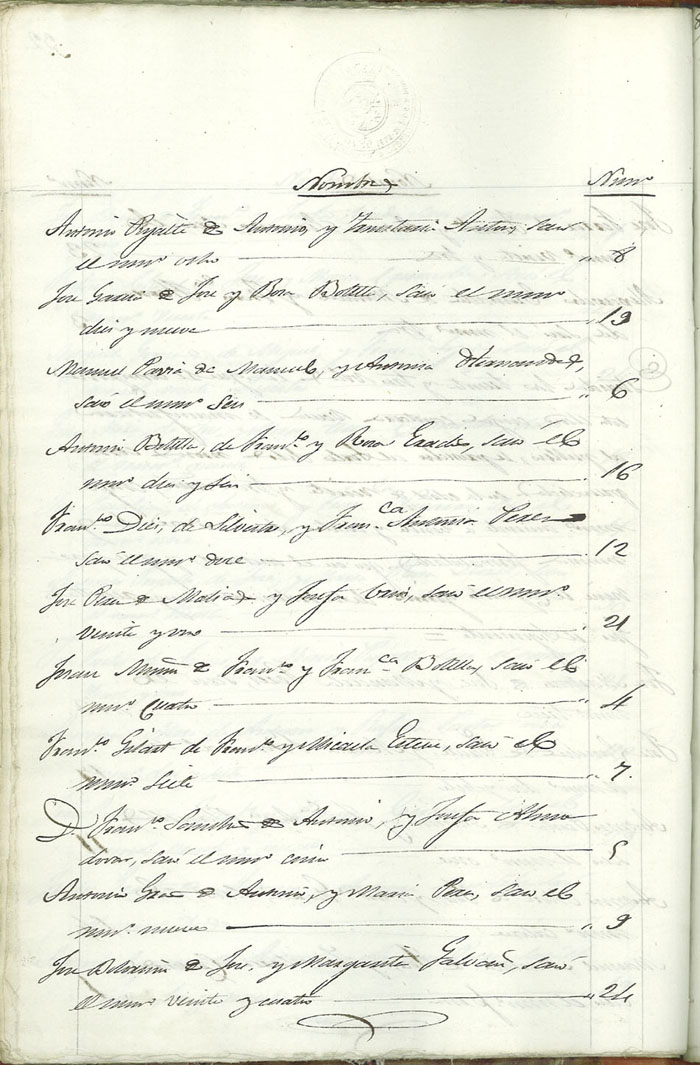 Nombres Numº
Antonio de Antonio, y saco
el numº ocho " 8
Jose Garcia de Jose y Rosa Botella, sacó el numº
diez y nueve " 19
Manuel Pavia de Manuel, y Antonia Hernandez,
sacó el numº Seis " 6
Antonio Botella, de Franᶜᵒ y Rosa sacó el
numº diez y seis " 16
Franᶜᵒ Diez, de Silvestre, y Franᶜᵃ Antonia Perez
sacó el numº doce " 12
Jose Perez de y Josefa sacó el numº
veinte y uno " 21
Juan de Franᶜᵒ y Franᶜᵃ Botella, saco el
numº Cuatro " 4
Franᶜᵒ Gilart de Franᶜᵒ y Micaela Esteve, sacó el
numº Siete " 7.
D. Franᶜᵒ Sanchez de Antonio, y Josefa Almo
dovar, sacó el numº cinco 5
Antonio de Antonio, y Maria Perez, saco el
numº nueve " 9
Jose de Jose, y Margarita Galvañ, sacó
el numº veinte y cuatro " 24